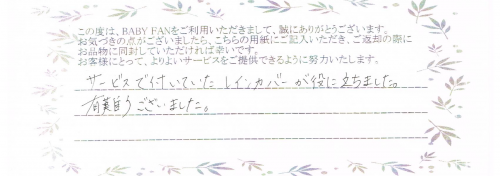 この度は、BABY FANをご利用いただきまして、誠にありがとうございます。
お気づきの点がございましたら、こちらの用紙にご記入いただき、ご返却の際に
お品物に同封していただければ幸いです。
お客様にとって、よりよいサービスをご提供できるように努力いたします。
サービスで付いていたレインカバーが役に立ちました。
有難うございました。